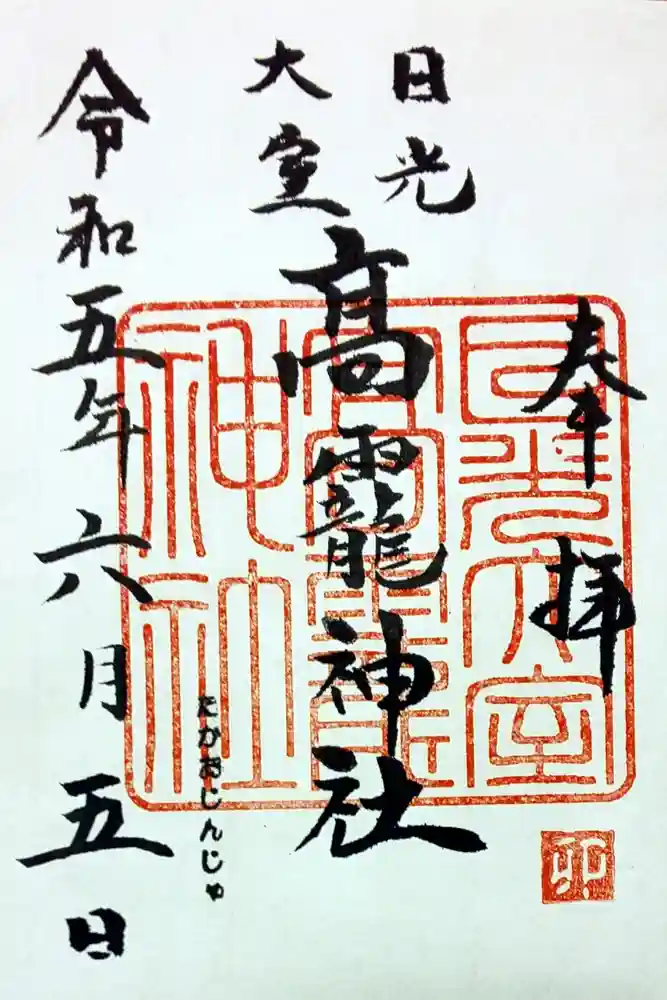 奉拝
日光
大室
高靇神社
たかおじんじゃ
令和五年六月五日
日光大室
高靇
神社
卯